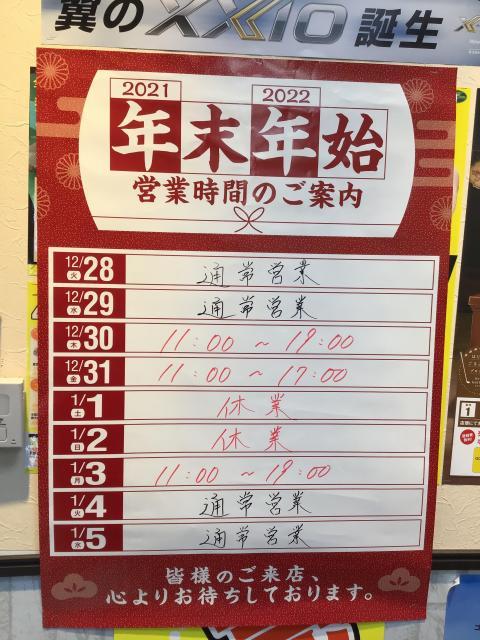 翼のXXIO誕生
2021 2022
年末年始
営業時間のご案内
12/28 火 通常営業
12/29 水 通常営業
12/30 木 11:00 ~ 19:00
12/31 金 11:00 ~ 17:00
1/1 土 休業
1/2 日 休業
1/3 月 11:00 ~ 19:00
1/4 火 通常営業
1/5 水 通常営業
皆様のご来店、
心よりお待ちしております。